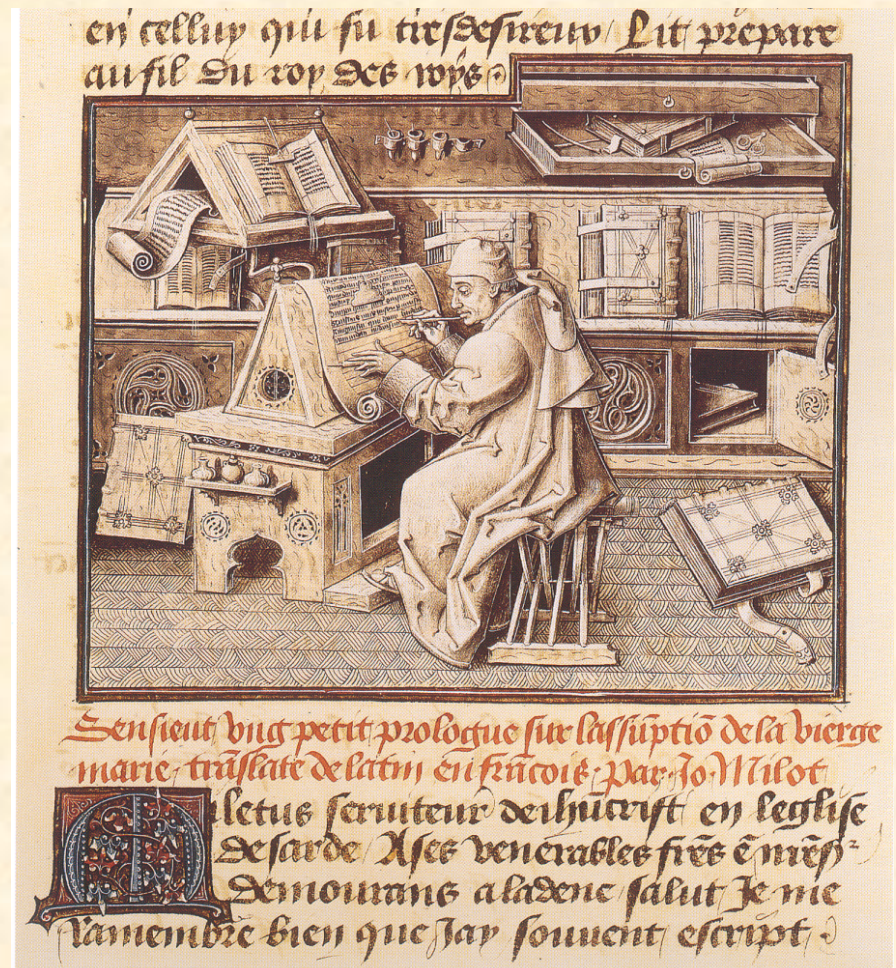 en celluy qui fu tresdesireux / Lit prepare
au fil du roy des roys
Sensieut vng petit prologue sur lassũptiõ de la vierge
marie, trãslate de latin en frãcois. par Jo. Milot
Miletus seruiteur de ihũcrist en leglise
de sarde / A ses venerables freẽs
demourans a ladene salut Je me
ramembre bien que Jay souuent escript